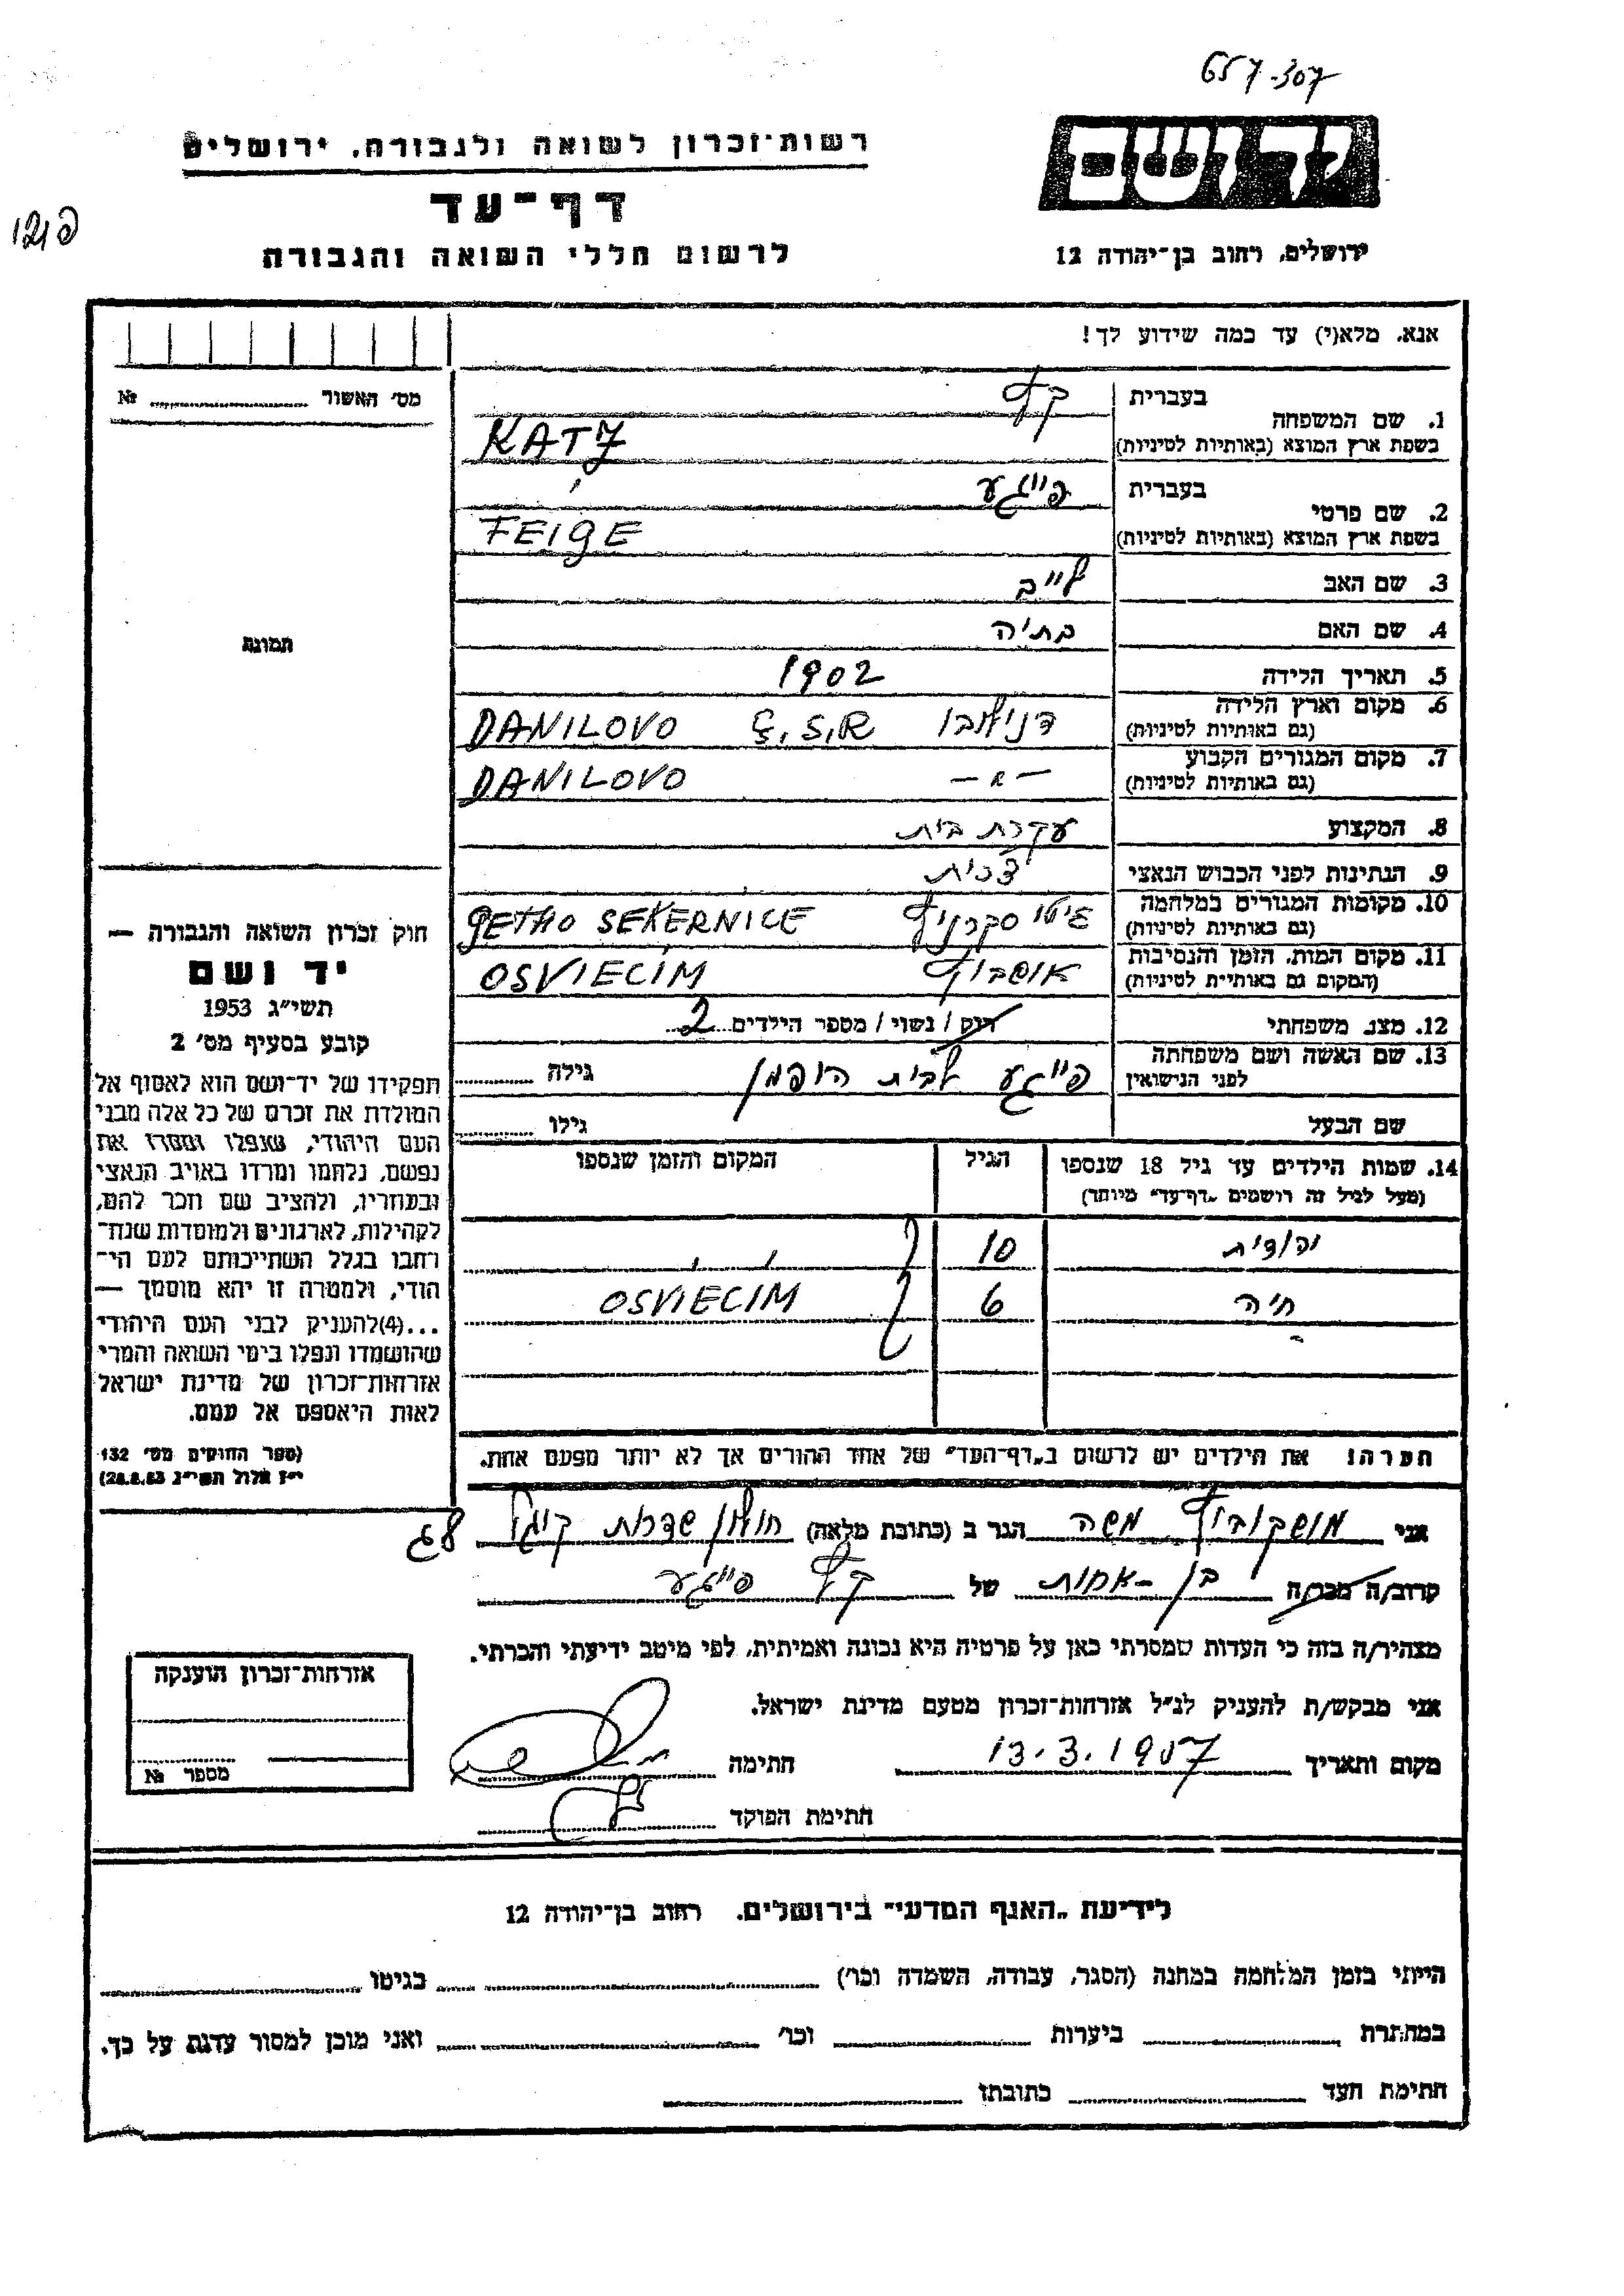 657-307
יד ושם
רשות־זכרון לשואה ולגבורה, ירושלים
דף־עד
לרשום חללי השואה והגבורה
ירושלים, רחוב בן־יהודה 12
אנא, מלא(י) עד כמה שידוע לך!
מס׳ האשור №
תמונה
1. שם המשפחה
בעברית כץ
בשפת ארץ המוצא (באותיות לטיניות) KATZ
2. שם פרטי
בעברית פייגע
בשפת ארץ המוצא (באותיות לטיניות) FEIGE
3. שם האב לייב
4. שם האם בתיה
5. תאריך הלידה 1902
6. מקום וארץ הלידה דנילובו Č.S.R DANILOVO
(גם באותיות לטיניות)
7. מקום המגורים הקבוע — " — DANILOVO
(גם באותיות לטיניות)
8. המקצוע עקרת בית
9. הנתינות לפני הכבוש הנאצי צכית
10. מקומות המגורים במלחמה גיטו סקרניץ GETHO SEKERNICE
(גם באותיות לטיניות)
11. מקום המות, הזמן והנסיבות אושביץ OSVIECIM
(המקום גם באותיות לטיניות)
12. מצב משפחתי רווק / נשוי / מספר הילדים 2
13. שם האשה ושם משפחתה פייגע לבית הופמן גילה
לפני הנישואין
שם הבעל גילו
14. שמות הילדים עד גיל 18 שנספו הגיל המקום והזמן שנספו
(מעל לגיל זה רושמים „דף־עד״ מיוחד)
יהודית 10
חיה 6 OSVIECIM
הערה! את הילדים יש לרשום ב„דף־העד״ של אחד ההורים אך לא יותר מפעם אחת.
חוק זכרון השואה והגבורה —
יד ושם
תשי״ג 1953
קובע בסעיף מס׳ 2
תפקידו של יד־ושם הוא לאסוף אל
המולדת את זכרם של כל אלה מבני
העם היהודי, שנפלו ומסרו את
נפשם, נלחמו ומרדו באויב הנאצי
ובעוזריו, ולהציב שם וזכר להם,
לקהילות, לארגונים ולמוסדות שנח־
רבו בגלל השתייכותם לעם הי־
הודי, ולמטרה זו יהא מוסמך —
...(4)להעניק לבני העם היהודי
שהושמדו ונפלו בימי השואה והמרי
אזרחות־זכרון של מדינת ישראל
לאות היאספם אל עמם.
(ספר החוקים מס׳ 132
י״ז אלול תשי״ג 28.8.53)
אני מושקוביץ משה הגר ב (כתובת מלאה) חולון שדרות קוגל
קרוב/ה מכר/ה בן-אחות של כץ פייגע
מצהיר/ה בזה כי העדות שמסרתי כאן על פרטיה היא נכונה ואמיתית, לפי מיטב ידיעתי והכרתי.
אני מבקש/ת להעניק לנ״ל אזרחות־זכרון מטעם מדינת ישראל.
מקום ותאריך 13.3.1957 חתימה
חתימת הפוקד
אזרחות־זכרון הוענקה
מספר №
לידיעת „האגף המדעי״ בירושלים, רחוב בן־יהודה 12
הייתי בזמן המלחמה במחנה (הסגר, עבודה, השמדה וכו׳) בגיטו
במחתרת ביערות וכו׳ ואני מוכן למסור עדות על כך.
חתימת העד כתובתו